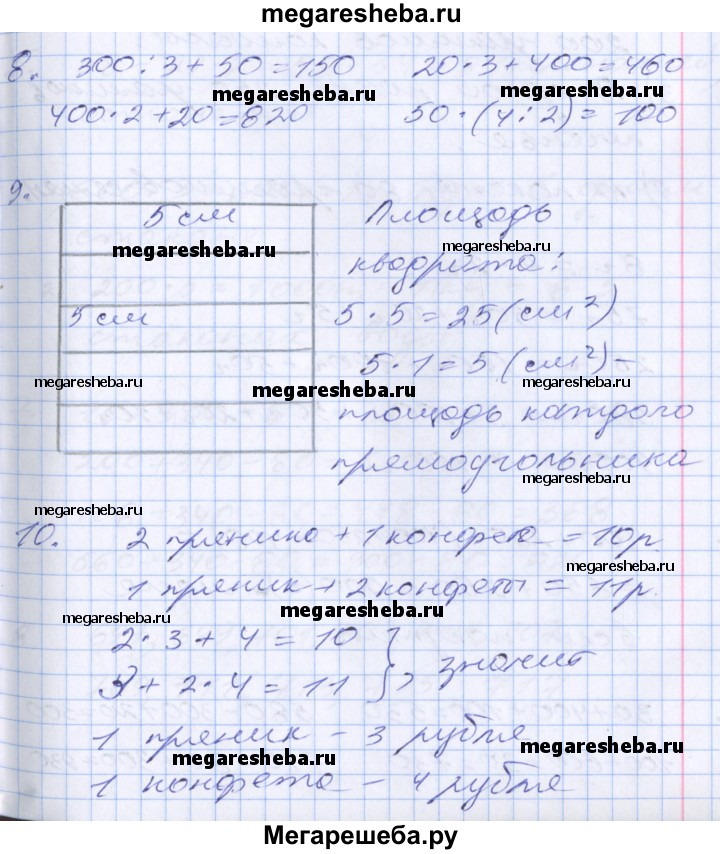 megaresheba.ru
8. 300:3+50=150 20·3+400=460
megaresheba.ru megaresheba.ru
400·2+20=820 50·(4:2)=100
9.
5 см Площадь
megaresheba.ru megaresheba.ru
квадрата:
5 см 5·5=25(см²)
5·1=5(см²)–
megaresheba.ru megaresheba.ru megaresheba.ru
площадь каждого
прямоугольника
megaresheba.ru
10. 2 пряника + 1 конфета = 10р.
megaresheba.ru
1 пряник + 2 конфеты = 11р.
megaresheba.ru megaresheba.ru
2·3+4=10
3+2·4=11 }, значит
1 пряник – 3 рубля
megaresheba.ru megaresheba.ru
1 конфета – 4 рубля
Мегарешеба.ру